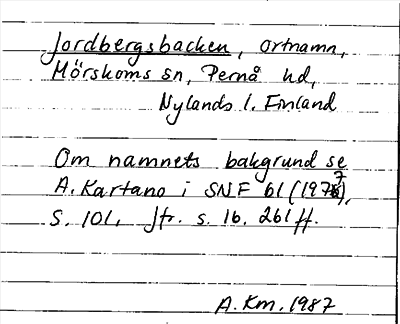 Jordbergsbacken, ortnamn,
Mörskoms sn, Pernå hd,
Nylands l. Finland
Om namnets bakgrund se
A. Kartano i SNF 61 (1977),
S. 101, Jfr. s. 16, 261 ff.
A.Km. 1987